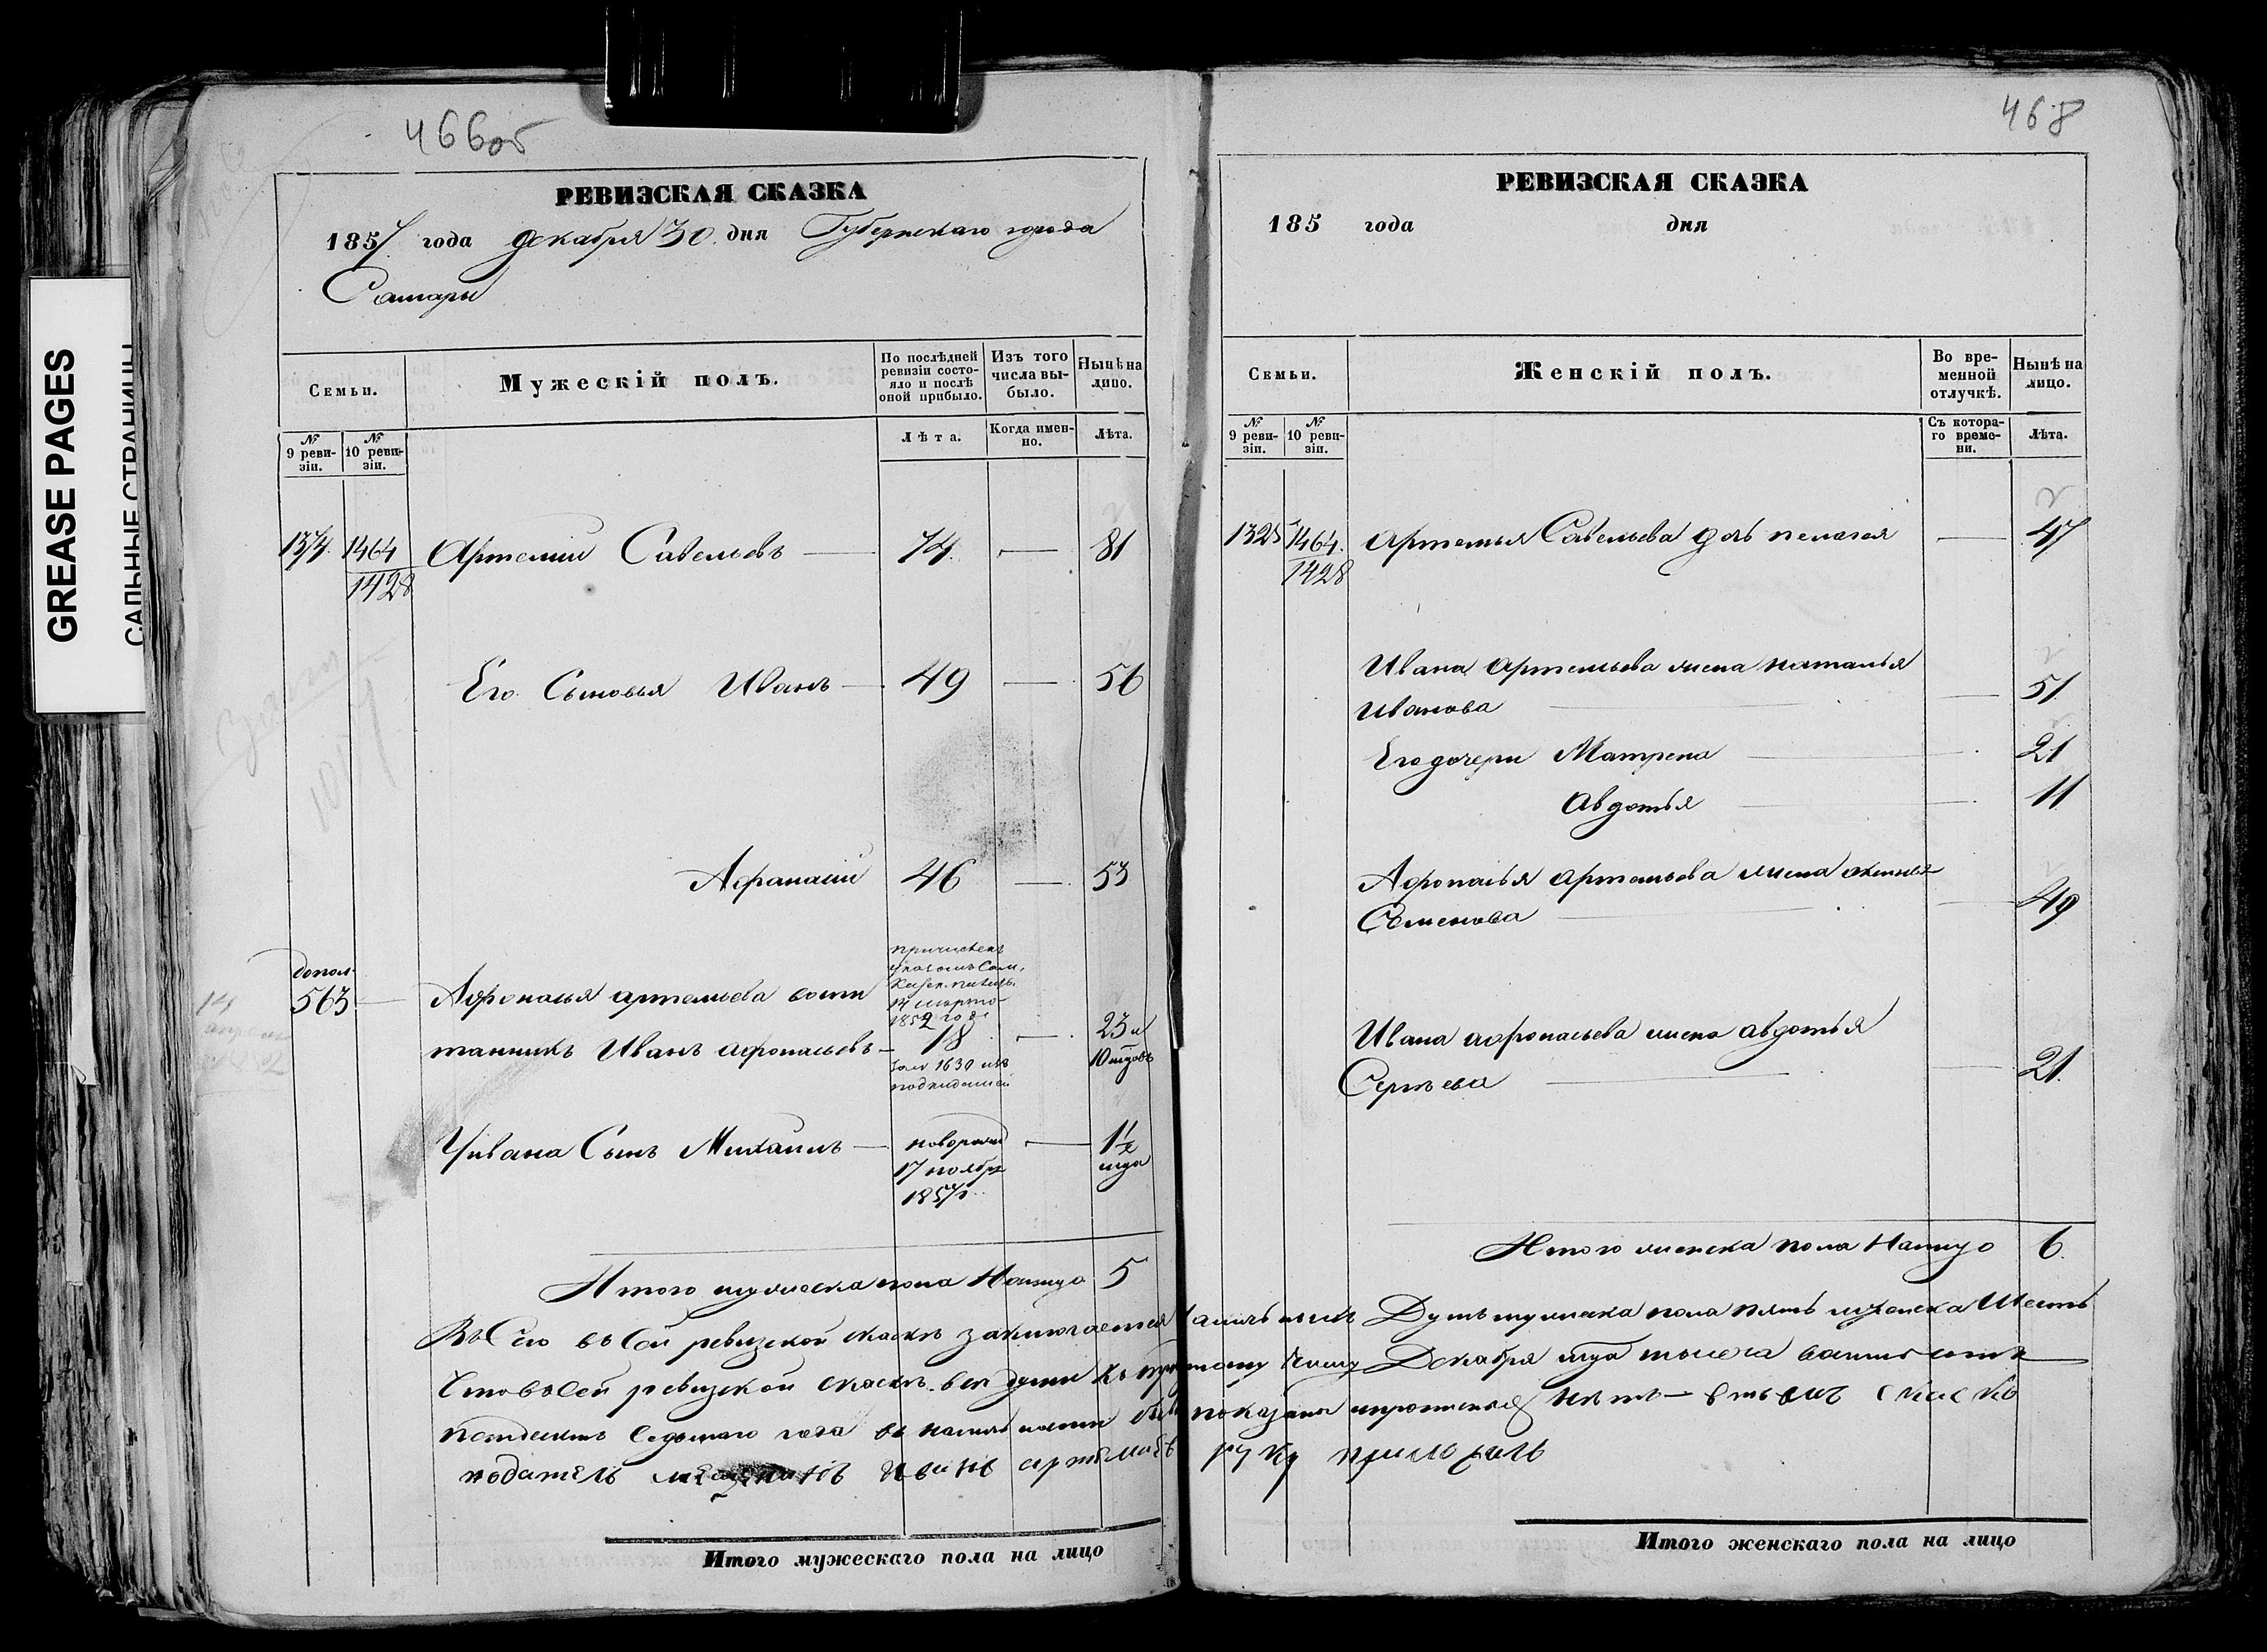 466об
РЕВИЗСКАЯ СКАЗКА
1857 года декабря 30 дня Губернскаго города
Самары
Семьи.
Мужескій полъ.
По послѣдней ревизіи состояло и послѣ оной прибыло.
Изъ того числа выбыло.
Нынѣ на лицо.
№ 9 ревизіи.
№ 10 ревизіи.
Лѣта.
Когда именно.
Лѣта.
1374. 1464 Артемій Савельевъ — 74. — 81
1428
Его Сыновья Иванъ — 49 — 56
Афанасій 46 — 53
причисленъ
указомъ Сам.
Казен. палаты
14 марта
1852 года
допол.
563 — Афонасья артемьева воспи
танникъ Иванъ афонасьевъ — 18 — 23 и
10 мцовъ
1630 изъ
подкидышей
У ивана Сынъ Михаилъ — новорожд — 1 1/2
17 ноября мца
1857 г.
Итого мужеска пола Налицо 5
САЛЬНЫЕ СТРАНИЦЫ
GREASE PAGES
Итого мужескаго пола на лицо
468
РЕВИЗСКАЯ СКАЗКА
185 года дня
Семьи.
Женскій полъ.
Во временной отлучкѣ.
Нынѣ на лицо.
№ 9 ревизіи.
№ 10 ревизіи.
Съ котораго времени.
Лѣта.
1325 1464. Артемья Савельева дочь пелагея — 47
1428
Ивана Артемьева жена наталья
Иванова — 51
Его дочери Матрена — 21
Авдотья — 11
Афонасья артемьева жена
Семенова — 49
Ивана афонасьева жена авдотья
Сергѣева — 21.
Итого женска пола Налицо 6.
Всего в сей ревизской сказкѣ заключается налицо Душъ мужеска пола пять женска Шесть
Что в сей ревизской сказкѣ все души къ Декабря мца тысеча восимьсотъ
петдесятъ седьмаго года въ налицо показаны и пропиской нѣтъ — в томъ сказки
податель мѣщанинъ Иванъ артемьевъ руку приложилъ
Итого женскаго пола на лицо